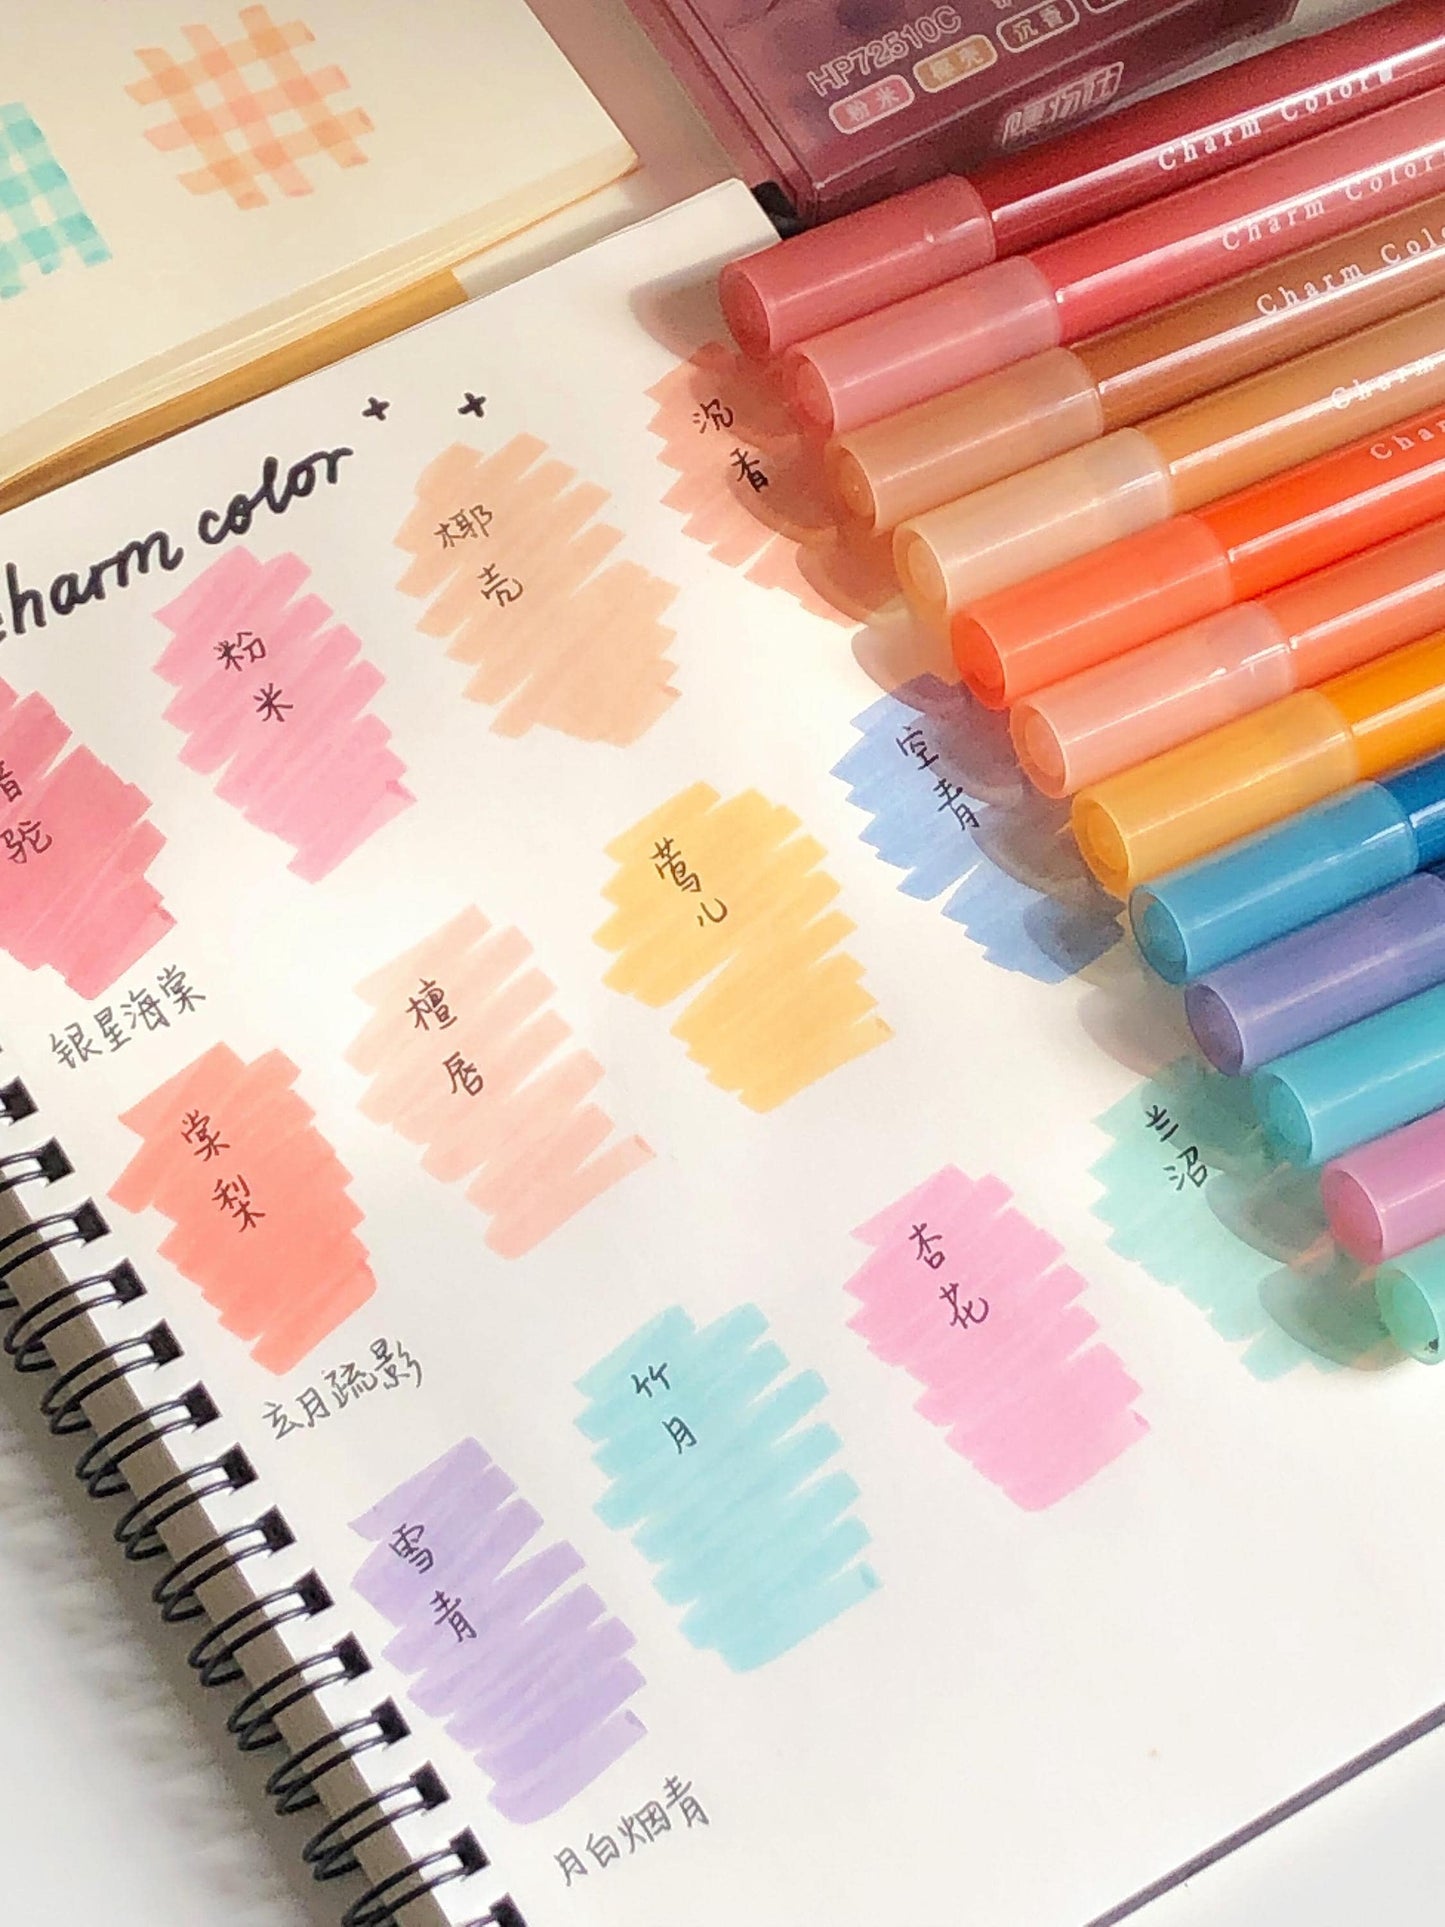 HP72510C
粉米 椰壳 沉香
Charm Color
Charm Color
Charm Colo
Charm
Char
charm color
沉香
椰壳
粉米
驼
银星海棠
空青
莺儿
檀唇
棠梨
玄月疏影
兰沼
杏花
竹月
雪青
月白烟青